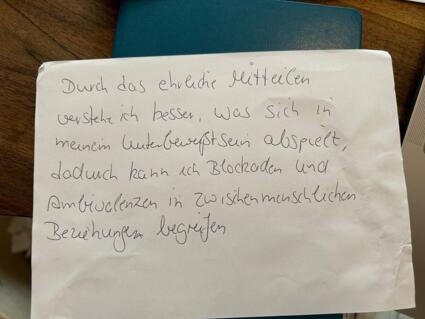 Durch das ehrliche Mitteilen
verstehe ich besser, was sich in
meinem Unterbewußtsein abspielt,
dadurch kann ich Blockaden und
Ambivalenzen in zwischenmenschlichen
Beziehungen begreifen